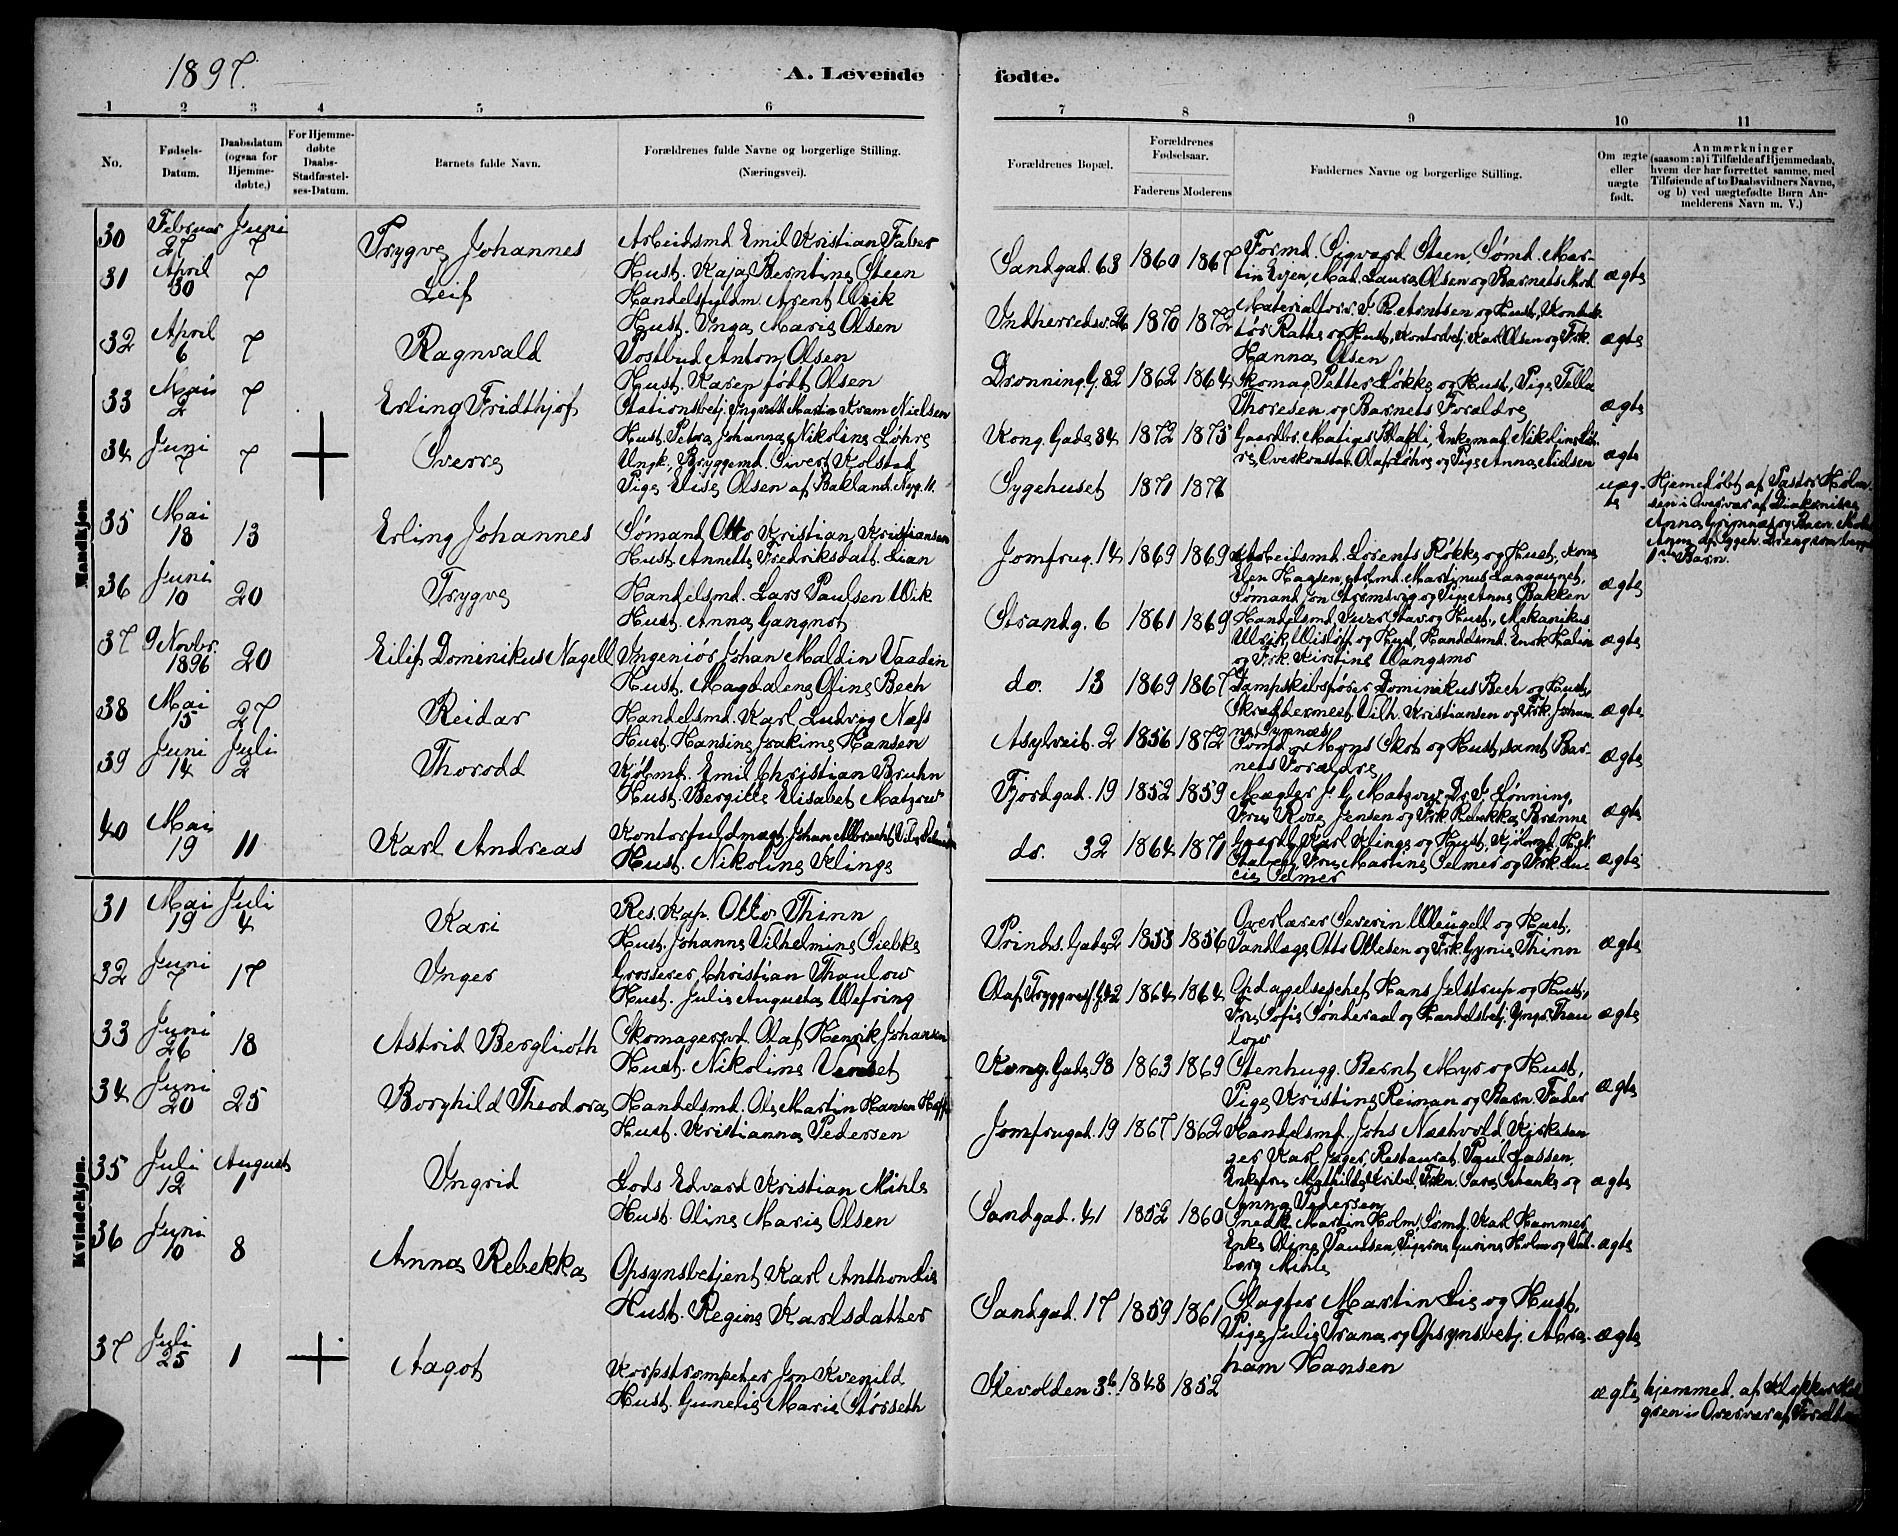 1897.
A. Levende fødte.
1 2 3 4 5 6 7 8 9 10 11
No.
Fødsels-Datum.
Daabsdatum (ogsaa for Hjemme-døbte.)
For Hjemme-døbte Daabs-Stadfæstel-ses-Datum.
Barnets fulde Navn.
Forældrenes fulde Navne og borgerlige Stilling. (Næringsvei).
Forældrenes Bopæl.
Forældrenes Fødselsaar.
Faderens Moderens
Faddernes Navne og borgerlige Stilling.
Om ægte eller uægte født.
Anmærkninger (saasom: a) i Tilfælde af Hjemmedaab, hvem der har forrettet samme, med Tilføiende af to Daabsvidners Navne, og b) ved uægtefødte Børn An-melderens Navn m. V.)
Mandkjøn
30 Februar 27 Juni 7 Trygve Johannes
Arbeidsmd Emil Kristian Faber
Hust. Kaja Berntine Steen
Sandgad. 63 1860 1867
Formd. Sigvard Steen, Sømd. Mar-
tin Evjen, Mad. Laura Olsen og Barnets Mod.
ægte
31 April 30 7 Leif
Handelsfuldm. Arent Wik
Hust. Inga Marie Olsen
Indherredsv. 26 1870 1872
Materialforv. J. R. Arntsen og Hust, Kontor
Hust, Kontorbetj. Karl Olsen og Frk.
Hanna Olsen
ægte
32 April 6 7 Ragnvald
Postbud Anton Olsen
Hust. Karen født Olsen
Dronning.G 82 1862 1864
Skomag. Petter Løkke og Hust, Pige
Thoresen og Barnets Forældre
ægte
33 Mai 2 7 Erling Fridthjof
Stationsbetj. Ingvald Martin Kram Nielsen
Hust. Petra Johanna Nikoline Løhre
Kong. Gade 84 1872 1875
Gaardbr. Matias Blakli, Enkemad. Nikoline Løh-
re, Overkonstab. Olaf Løhre og Pige Anna Nielsen
ægte
34 Juni 7 7 + Sverre
Ungk, Bryggemd. Sivert Kolstad
Pige Elise Olsen af Bakland. Nyg. 11.
Sygehuset 1871 1871
uæg-
te
Hjemmedøbt af Pastor Holm-
sen i Overvær af Diakonisse
Anna Grimnæs og
1ste Barn.
35 Mai 18 13 Erling Johannes
Sømand Otto Kristian Kristiansen
Hust. Annette Fredriksdatt. Lian
Jomfrug. 14 1869 1869
Arbeidsmd. Lorents Røkke og Hust, Kone
Elen Hagsen, Arbmd. Martinus Langaunet,
Sømand Jon Strømsvig og Pige Anna Bakken
ægte
36 Juni 10 20 Trygve
Handelsmd. Lars Paulsen Wik
Hust. Anna Gangnøs
Strandg. 6 1861 1869
Handelsmd. Iver Stav og Hust, Mekanikus
Ulrik Wisløff og Hust, Handelsmd. Enok Halin
og Frk. Kirstine Wangsmo
ægte
37 9 Novbr. 1896 20 Eilif Dominikus Nagell
Ingeniør Johan Maldin Vaaden
Hust. Magdalena Ofine Bech
do. 13 1869 1867
Dampskibsfører Dominikus Bech og Hust,
Skræddermest. Vilh. Kristiansen og Frk. Johan
ægte
38 Mai 15 27 Reidar
Handelsmd. Karl Ludvig Næss
Hust. Hansine Joakime Hansen
Asylveit. 2 1856 1872
Sømd. Mons Skot og Hust, samt Bar-
nets Forældre
ægte
39 Juni 14 Juli 2 Thorodd
Kjøbmd. Emil Christian Bruhn
Hust. Bergitte Elisabet Matzow
Fjordgad. 19 1852 1859
Mægler J. G. Matzow, Dr. J. Lønning,
Fru Rose Jensen og Frk. Rebekka Brønne
ægte
40 Mai 19 11 Karl Andreas
Kontorfuldmægt. Johan Albrecht
Hust. Nikoline Klinge
do. 32 1864 1871
Gaardb. Karl Klinge og Hust, Kjøbmd.
Fru Martine Selmer og Frk. Lu-
cie Selmer
ægte
Kvindekjøn.
31 Mai 19 Juli 4 Kari
Res. Kap. Otto Thinn
Hust. Johanne Vilhelmine Siebke
Prinds. Gade 2 1853 1856
Overlærer Severin Weugell og Hust,
Tandlæge Otto Ottesen og Frk. Gynie Thinn
ægte
32 Juni 7 17 Inger
Grosserer Christian Thaulow
Hust. Julie Augusta Wefring
Olaf Tryggves. G 32 1864 1864
Opdagelseschef Hans Jelstrup og Hust,
Fru Sofie Sønderaal og Handelsbetj. Yngv. Thau
low
ægte
33 Juni 26 18 Astrid Berglioth
Skomagersvd. Olaf Henrik Johansen
Hust. Nikoline Venset
Kong. Gade 98 1863 1869
Stenhugg. Bernt Myr og Hust,
Pige Kristine Reiman og Barn. Fader
ægte
34 Juni 20 25 Borghild Theodora
Handelsmd. Ole Martin Hansen Hoff
Hust. Kristianna Pedersen
Jomfrugad. 19 1867 1862
Handelsmd. Johs Næstvold, Kirkesan
ger Karl Jæger, Restaurat. Paul Lassen,
Enkefru Mathilde Kribel, Frkn. Sara Schanke og
Anna Pedersen
ægte
35 Juli 12 August 1 Ingrid
Lods Edvard Kristian Mihle
Hust. Oline Marie Olsen
Sandgad. 41 1852 1860
Snedk. Martin Holm, Sømd. Karl Hammer
Enke Oline Paulsen, Pigerne Gurine Holm og Val-
borg Mihle
ægte
36 Juni 10 8 Anna Rebekka
Opsynsbetjent Karl Anthon Lie
Hust. Regine Karlsdatter
Sandgad. 17 1859 1861
Slagter Martin Lie og Hust,
Pige Julie Trana og Opsynsbetj. Abra-
ham Hansen
ægte
37 Juli 25 1 + Aagot
Korpstrompeter Jon Kvenild
Hust. Gunelie Marie Størseth
Stevolden 3b 1848 1852
ægte
hjemmed. af Klokker Hal
gren i Overvær af Forældre